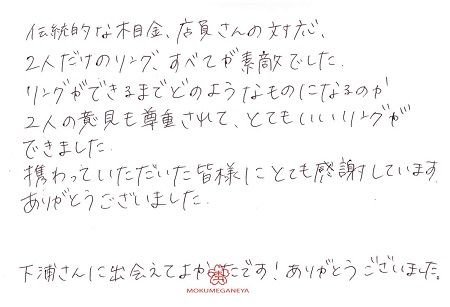 伝統的な木目金、店員さんの対応、
2人だけのリング、すべてが素敵でした。
リングができるまでどのようなものになるのか
2人の意見も尊重されて、とてもいいリングが
できました.
携わっていただいた皆様にとても感謝しています
ありがとうございました.
下浦さんに出会えてよかったです！ありがとうございました。
MOKUMEGANEYA